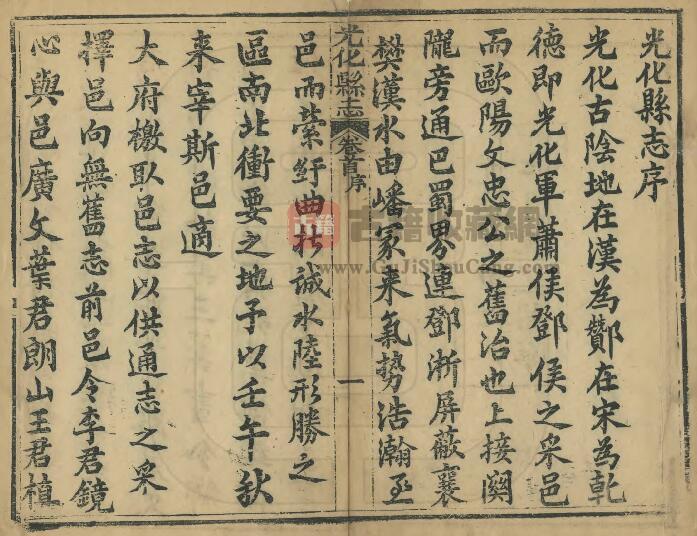 光化縣志序
光化古陰地在漢為酇在宋為乾
德即光化軍蕭侯鄧侯之采邑
而歐陽文忠公之舊治也上接關
隴旁通巴蜀界連鄧淅屏蔽襄
樊漢水由嶓冢来氣勢浩瀚至
光化縣志
卷首序
一
邑而縈紆曲折誠水陸形勝之
區南北衝要之地予以壬午秋
来宰斯邑適
大府檄取邑志以供通志之采
擇邑向無舊志前邑令李君鏡
心與邑廣文葉君朗山王君植
古籍
古籍收藏網
www.GuJiShouCang.com